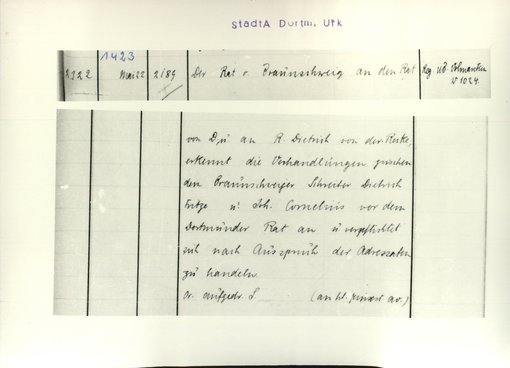 StadtA Dortm. Urk
1423
2122 Mai 22 2189 Der Rat v. Braunschweig an den Rat Reg UB Volmarstein
N 1024.
von D. u an R. Dietrich von der Recke,
erkennt die Verhandlungen zwischen
den Braunschweiger Schreiber Dietrich
Fritze u. Joh. Cornelius vor dem
Dortmunder Rat an u verpflichtet
sich nach Ausspruch der Adressaten
zu handeln.
Or. aufgedr. S.